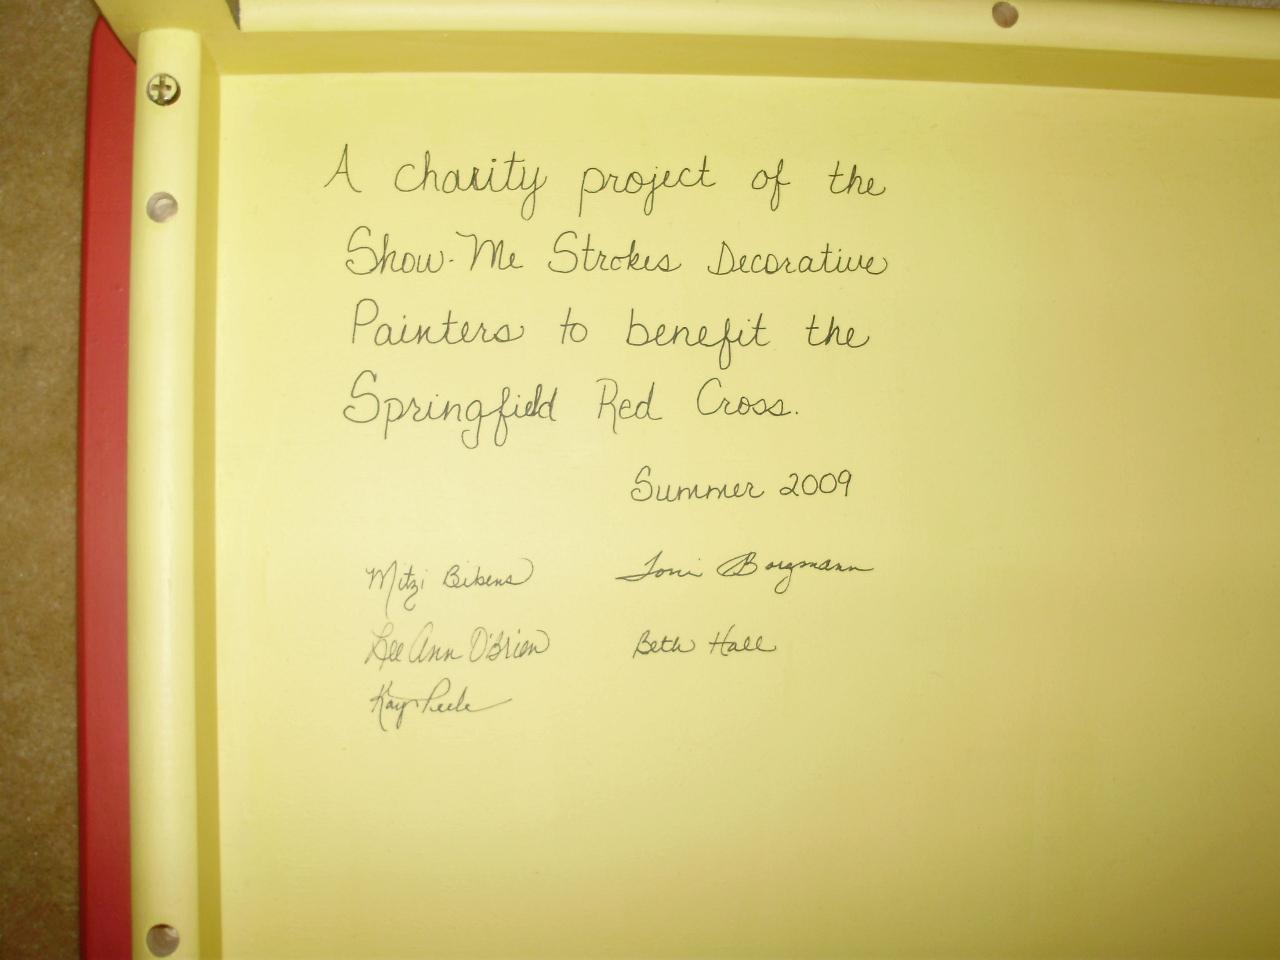 A charity project of the
Show-Me Strokes Decorative
Painters to benefit the
Springfield Red Cross.
Summer 2009
Mitzi Bibens Toni Borgmann
Lee Ann O'Brien Beth Hall
Kay Peele